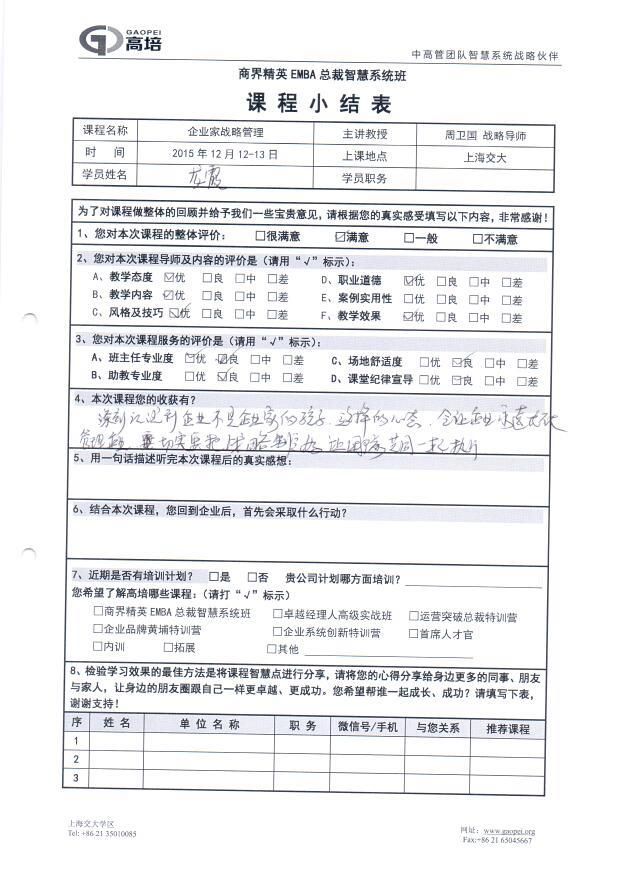 GAOPEI
高培
中高管团队智慧系统战略伙伴
商界精英 EMBA 总裁智慧系统班
课程小结表
课程名称 企业家战略管理 主讲教授 周卫国 战略导师
时 间 2015 年 12 月 12-13 日 上课地点 上海交大
学员姓名 龙霞 学员职务
为了对课程做整体的回顾并给予我们一些宝贵意见，请根据您的真实感受填写以下内容，非常感谢！
1、您对本次课程的整体评价： □很满意 ☑满意 □一般 □不满意
2、您对本次课程导师及内容的评价是（请用“√”标示）：
A、教学态度 ☑优 □良 □中 □差 D、职业道德 ☑优 □良 □中 □差
B、教学内容 ☑优 □良 □中 □差 E、案例实用性 □优 □良 □中 □差
C、风格及技巧 ☑优 □良 □中 □差 F、教学效果 ☑优 □良 □中 □差
3、您对本次课程服务的评价是（请用“√”标示）：
A、班主任专业度 ☑优 ☑良 □中 □差 C、场地舒适度 □优 ☑良 □中 □差
B、助教专业度 □优 ☑良 □中 □差 D、课堂纪律宣导 □优 ☑良 □中 □差
4、本次课程您的收获有？
深刻认识到企业不是企业家的孩子，这样的心态，会让企业
共同一起执行
5、用一句话描述听完本次课程后的真实感想：
6、结合本次课程，您回到企业后，首先会采取什么行动？
7、近期是否有培训计划？ □是 □否 贵公司计划哪方面培训？
您希望了解高培哪些课程：（请打“√”标示）
□商界精英 EMBA 总裁智慧系统班 □卓越经理人高级实战班 □运营突破总裁特训营
□企业品牌黄埔特训营 □企业系统创新特训营 □首席人才官
□内训 □拓展 □其他
8、检验学习效果的最佳方法是将课程智慧点进行分享，请将您的心得分享给身边更多的同事、朋友
与家人，让身边的朋友圈跟自己一样更卓越、更成功。您希望帮谁一起成长、成功？请填写下表，
谢谢支持！
序 姓 名 单 位 名 称 职 务 微信号/手机 与您关系 推荐课程
1
2
3
上海交大学区
Tel: +86 21 35010085
网址：www.gaopei.org
Fax:+86 21 65045667